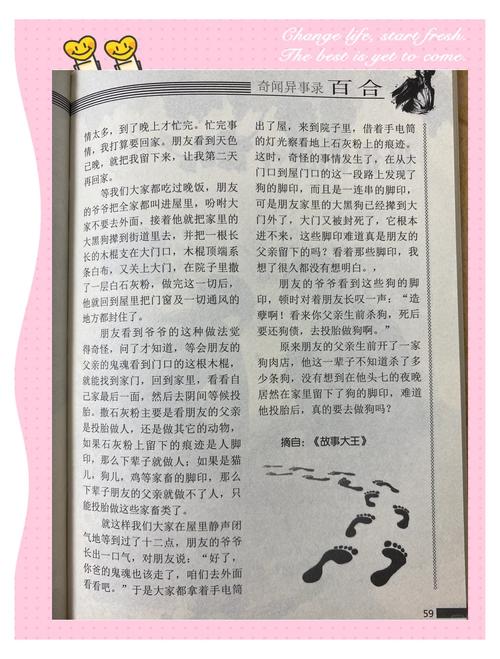 Change life, start fresh.
The best is yet to come.
奇闻异事录 百合
情太多，到了晚上才忙完。忙完事
情，我打算要回家。朋友看到天色
已晚，就把我留下来，让我第二天
再回家。
等我们大家都吃过晚饭，朋友
的爷爷把全家都叫进屋里，吩咐大
家不要去外面，接着他就把家里的
大黑狗撵到街道里去，并把一根长
长的木棍支在大门口，木棍顶端系
条白布，又关上大门，在院子里撒
了一层白石灰粉，做完这一切后，
他就回到屋里把门窗及一切通风的
地方都封住了。
朋友看到爷爷的这种做法觉
得奇怪，问了才知道，等会朋友的
父亲的鬼魂看到门口的这根木棍，
就能找到家门，回到家里，看看自
己家最后一面，然后去阴间等候投
胎。撒石灰粉主要是看朋友的父亲
是投胎做人，还是做其它的动物，
如果石灰粉上留下的痕迹是人脚
印，那么下辈子就做人；如果是猫
儿，狗儿，鸡等家畜的脚印，那么
下辈子朋友的父亲就做不了人，只
能投胎做这些家畜类了。
就这样我们大家在屋里静声闭
气地等到过了十二点，朋友的爷爷
长出一口气，对朋友说：“好了，
你爸的鬼魂也该走了，咱们去外面
看看吧。”于是大家都拿着手电筒
出了屋，来到院子里，借着手电筒
的灯光察看地上石灰粉上的痕迹。
这时，奇怪的事情发生了，在从大
门口到屋门口的这一段路上发现了
狗的脚印，而且是一连串的脚印，
可是朋友家里的大黑狗已经撵到大
门外了，大门又被封死了，它根本
进不来，这些脚印难道真是朋友的
父亲留下的吗？看着那些脚印，我
想了很久都没有想明白。，
朋友的爷爷看到这些狗的脚
印，顿时对着朋友长叹一声：“造
孽啊！看来你父亲生前杀狗，死后
要还狗债，去投胎做狗啊。”
原来朋友的父亲生前开了一家
狗肉店，他这一辈子不知道杀了多
少条狗，没有想到在他头七的夜晚
居然在家里留下了狗的脚印，难道
他投胎后，真的要去做狗吗？
摘自：《故事大王》
59